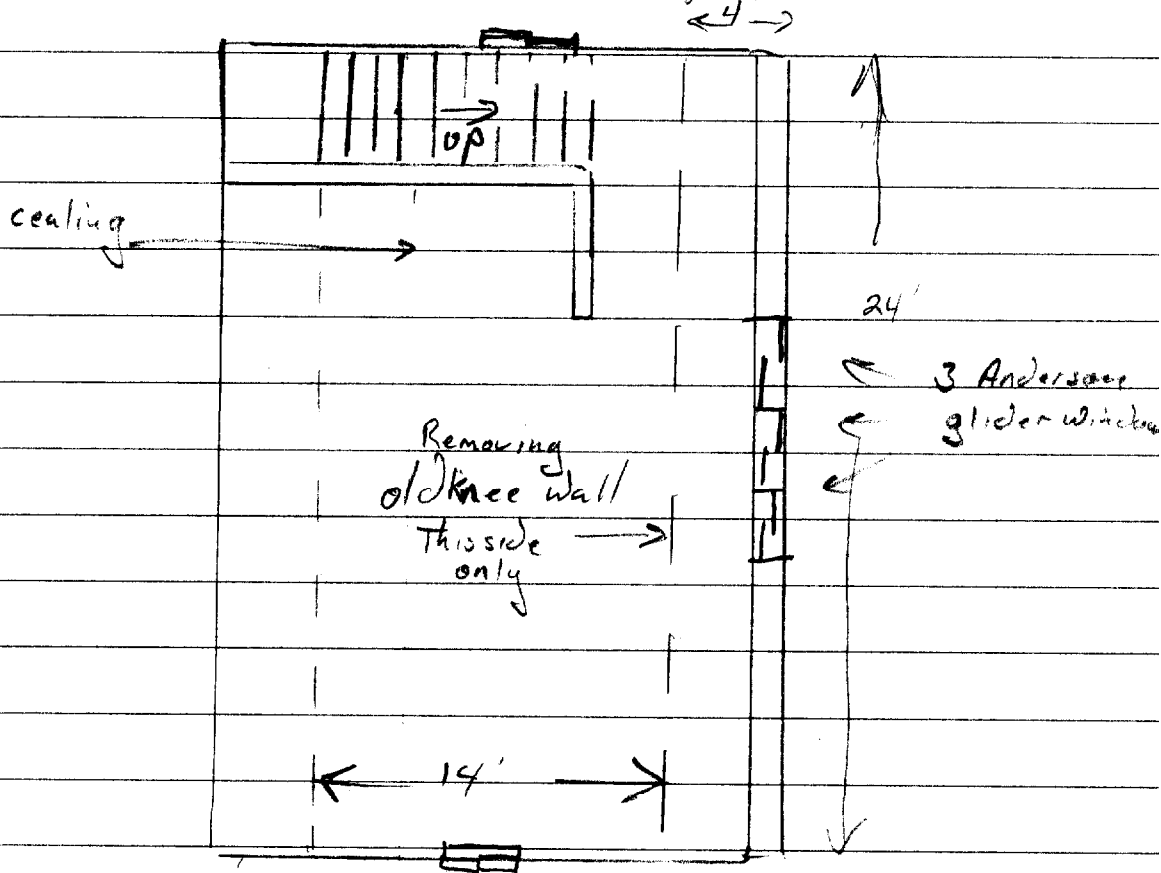 4
up
cealing
24'
3 Anderson
glider window
Removing
old knee wall
This side
only
14'